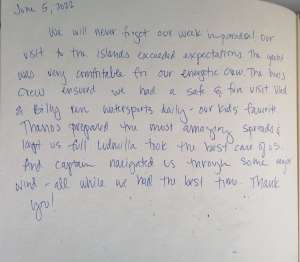 June 5, 2022
We will never forget our week in paradise! Our
visit to the islands exceeded expectations. The yacht
was very comfortable for our energetic crew. The
crew ensured we had a safe & fun visit. Vlad
& Billy ran watersports daily - our kids favorite.
Thanos prepared the most amazing spreads &
kept us full. Ludmilla took the best care of us.
And captain navigated us through some
wind - all while we had the best time. Thank
you!